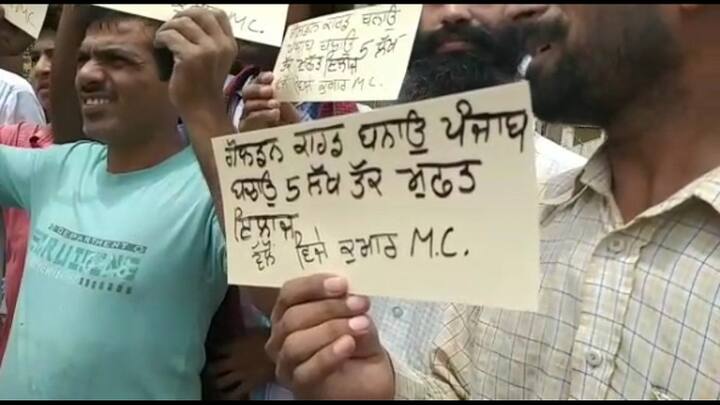 M.C.
ਗੋਲਡਨ ਕਾਰਡ ਬਨਾਉ
ਪੰਜਾਬ ਬਚਾਉ 5 ਲੱਖ
ਤੱਕ ਮੁਫਤ ਇਲਾਜ
ਵੱਲੋਂ ਵਿਜੇ ਕੁਮਾਰ M.C.
ਗੋਲਡਨ ਕਾਰਡ ਬਨਾਉ ਪੰਜਾਬ
ਬਚਾਉ 5 ਲੱਖ ਤੱਕ ਮੁਫਤ
ਇਲਾਜ
ਵੱਲੋਂ ਵਿਜੇ ਕੁਮਾਰ M.C.
DEPARTMENT